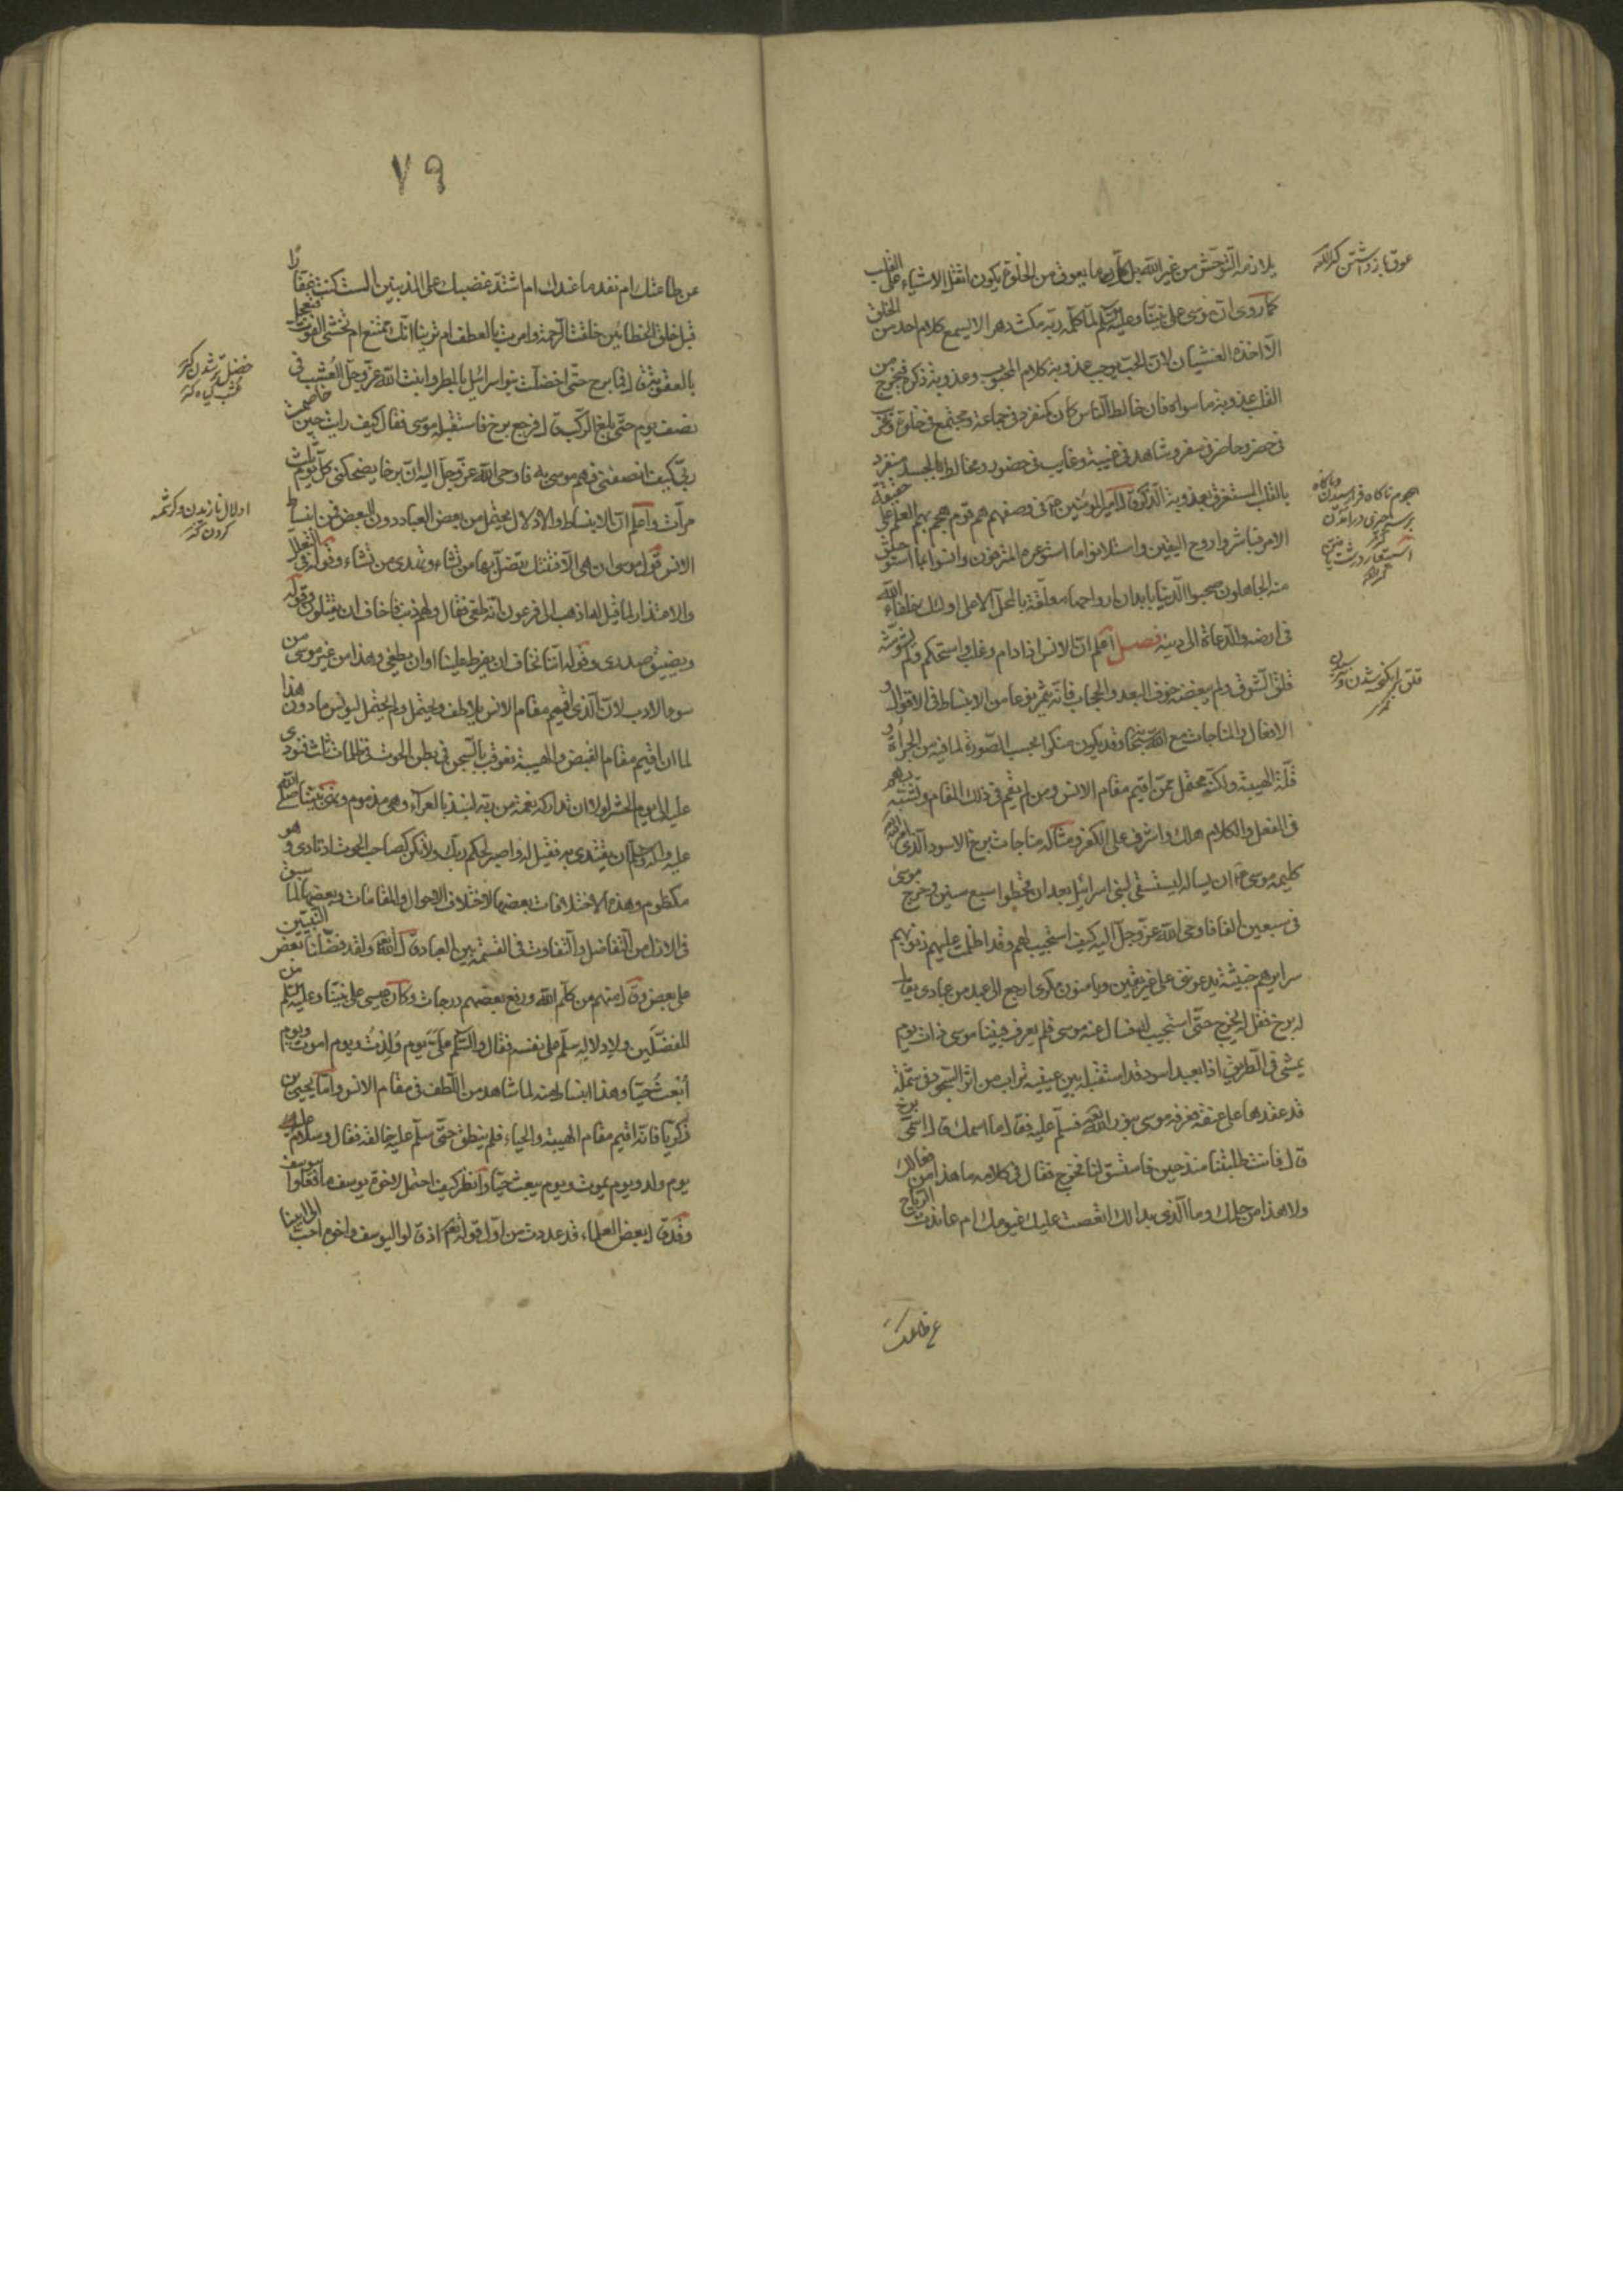 يلازمه التوحش من غير الله بل كل ما يعوق من الخلوة يكون اثقل الاشياء على القلب
كما روى ان موسى على نبينا وعليه السلم لما كلمه ربه مكث دهرا لا يسمع كلام احد من الخلق
الا اخذه الغشيان لان الحب يوجب عذوبة كلام المحبوب وعذوبة ذكره فيخرج من
القلب عذوبة ما سواه فان خالط الناس كان كمنفرد فى جماعة ومجتمع فى خلوة وغريب
فى حضر وحاضر فى سفر وشاهد فى غيبة وغايب فى حضور ومخالط بالجسد منفرد
بالقلب المستغرق بعذوبة الذكر قال امير المؤمنين فى وصفهم هم قوم هجم بهم العلم على حقيقة
الامر فباشروا روح اليقين واستلانوا ما استوعره المترفون وانسوا بما استوحش
منه الجاهلون صحبوا الدنيا بابدان ارواحها معلقة بالمحل الاعلى اولئك خلفاء الله
فى ارضه والدعاة الى دينه فصل اعلم ان الانس اذا دام وغلب واستحكم ولم يشوشه
قلق الشوق ولم ينغصه خوف البعد والحجاب فانه يثمر نوعا من الانبساط فى الاقوال و
الافعال والمناجات مع الله سبحانه وقد يكون منكرا بحسب الصورة لما فيه من الجراة و
قلة الهيبة ولكنه محتمل ممن اقيم مقام الانس ومن لم يقم فى ذلك المقام وتشبه بهم
فى الفعل والكلام هلك واشرف على الكفر ومثاله مناجات برخ الاسود الذى امر الله
كليمه موسى ان يساله ليستسقى لبنى اسرائيل بعد ان قحطوا سبع سنين وخرج موسى
فى سبعين الفا فاوحى الله عز وجل اليه كيف استجيب لهم وقد اظلت عليهم ذنوبهم
سرايرهم خبيثة يدعوننى على غير يقين ويامنون مكرى ارجع الى عبد من عبادى يقال
له برخ فقل له يخرج حتى استجيب له فسال عنه موسى فلم يعرف فبينا موسى ذات يوم
يمشى فى الطريق اذا بعبد اسود قد استقبله بين عينيه تراب من اثر السجود فى شملة
قد عقدها على عنقه فعرفه موسى بنور الله فسلم عليه فقال ما اسمك قال اسمى برخ
قال فانت طلبتنا منذ حين فاستسق لنا فخرج فقال فى كلامه ما هذا من فعالك
ولا هذا من حلمك وما الذى بدا لك انقصت عليك غيومك ام عاندت الرياح
عن طاعتك
عوق باز داشتن كنز اللغه
هجوم ناكاه
قلق
٧٩
عن طاعتك ام نفد ما عندك ام اشتد غضبك على المذنبين الست كنت غفارا
قبل خلق الخطائين خلقت الرحمة وامرت بالعطف ام ترينا انك ممتنع ام تخشى الفوت فتعجل
بالعقوبة قال فما برح حتى اخضلت بنو اسرائيل بالمطر وانبت الله عز وجل العشب فى
نصف يوم حتى بلغ الركب قال فرجع برخ فاستقبله موسى فقال كيف رايت حين خاصمت
ربى كيف انصفنى فهم موسى به فاوحى الله عز وجل اليه ان برخا يضحكنى كل يوم ثلث
مرات واعلم ان الانبساط والادلال يحتمل من بعض العباد دون البعض فمن انبساط
الانس قول موسى ان هى الا فتنتك تضل بها من تشاء وتهدى من تشاء وقوله فى التعلل
والاعتذار لما قيل له اذهب الى فرعون انه طغى فقال ولهم على ذنب فاخاف ان يقتلون وقوله
ويضيق صدرى وقوله اننا نخاف ان يفرط علينا او ان يطغى وهذا من غير موسى من
سوء الادب لان الذى اقيم مقام الانس يلاطف ويحتمل ولم يحتمل ليونس ما دون هذا
لما ان اقيم مقام القبض والهيبة فعوقب بالسجن فى بطن الحوت فى ظلمات ثلث فنودى
عليه الى يوم الحشر لولا ان تداركه نعمة من ربه لنبذ بالعراء وهو مذموم ونهى نبينا صلى الله
عليه واله وسلم ان يقتدى به فقيل له فاصبر لحكم ربك ولا تكن كصاحب الحوت اذ نادى وهو
مكظوم وهذه الاختلافات بعضها لاختلاف الاحوال والمقامات وبعضها لما سبق
فى الازل من التفاضل والتفاوت فى القسمة بين العباد قال الله ولقد فضلنا بعض النبيين
على بعض وقال منهم من كلم الله ورفع بعضهم درجات وكان عيسى على نبينا وعليه السلم من
المفضلين ولادلاله سلم على نفسه فقال والسلم على يوم ولدت ويوم اموت ويوم
ابعث حيا وهذا انبساط منه لما شاهد من اللطف فى مقام الانس واما يحيى بن
زكريا فانه اقيم مقام الهيبة والحياء فلم ينطق حتى سلم عليه خالقه فقال وسلام عليه
يوم ولد ويوم يموت ويوم يبعث حيا وانظر كيف احتمل لاخوة يوسف ما فعلوا بيوسف
وقد قال بعض العلماء قد عددت من اول قوله اذ قالوا ليوسف واخوه احب الى ابينا
خضل تر شدن كنز
عشب كياه كنز
ادلال نازيدن وكرشمه
كردن كنز